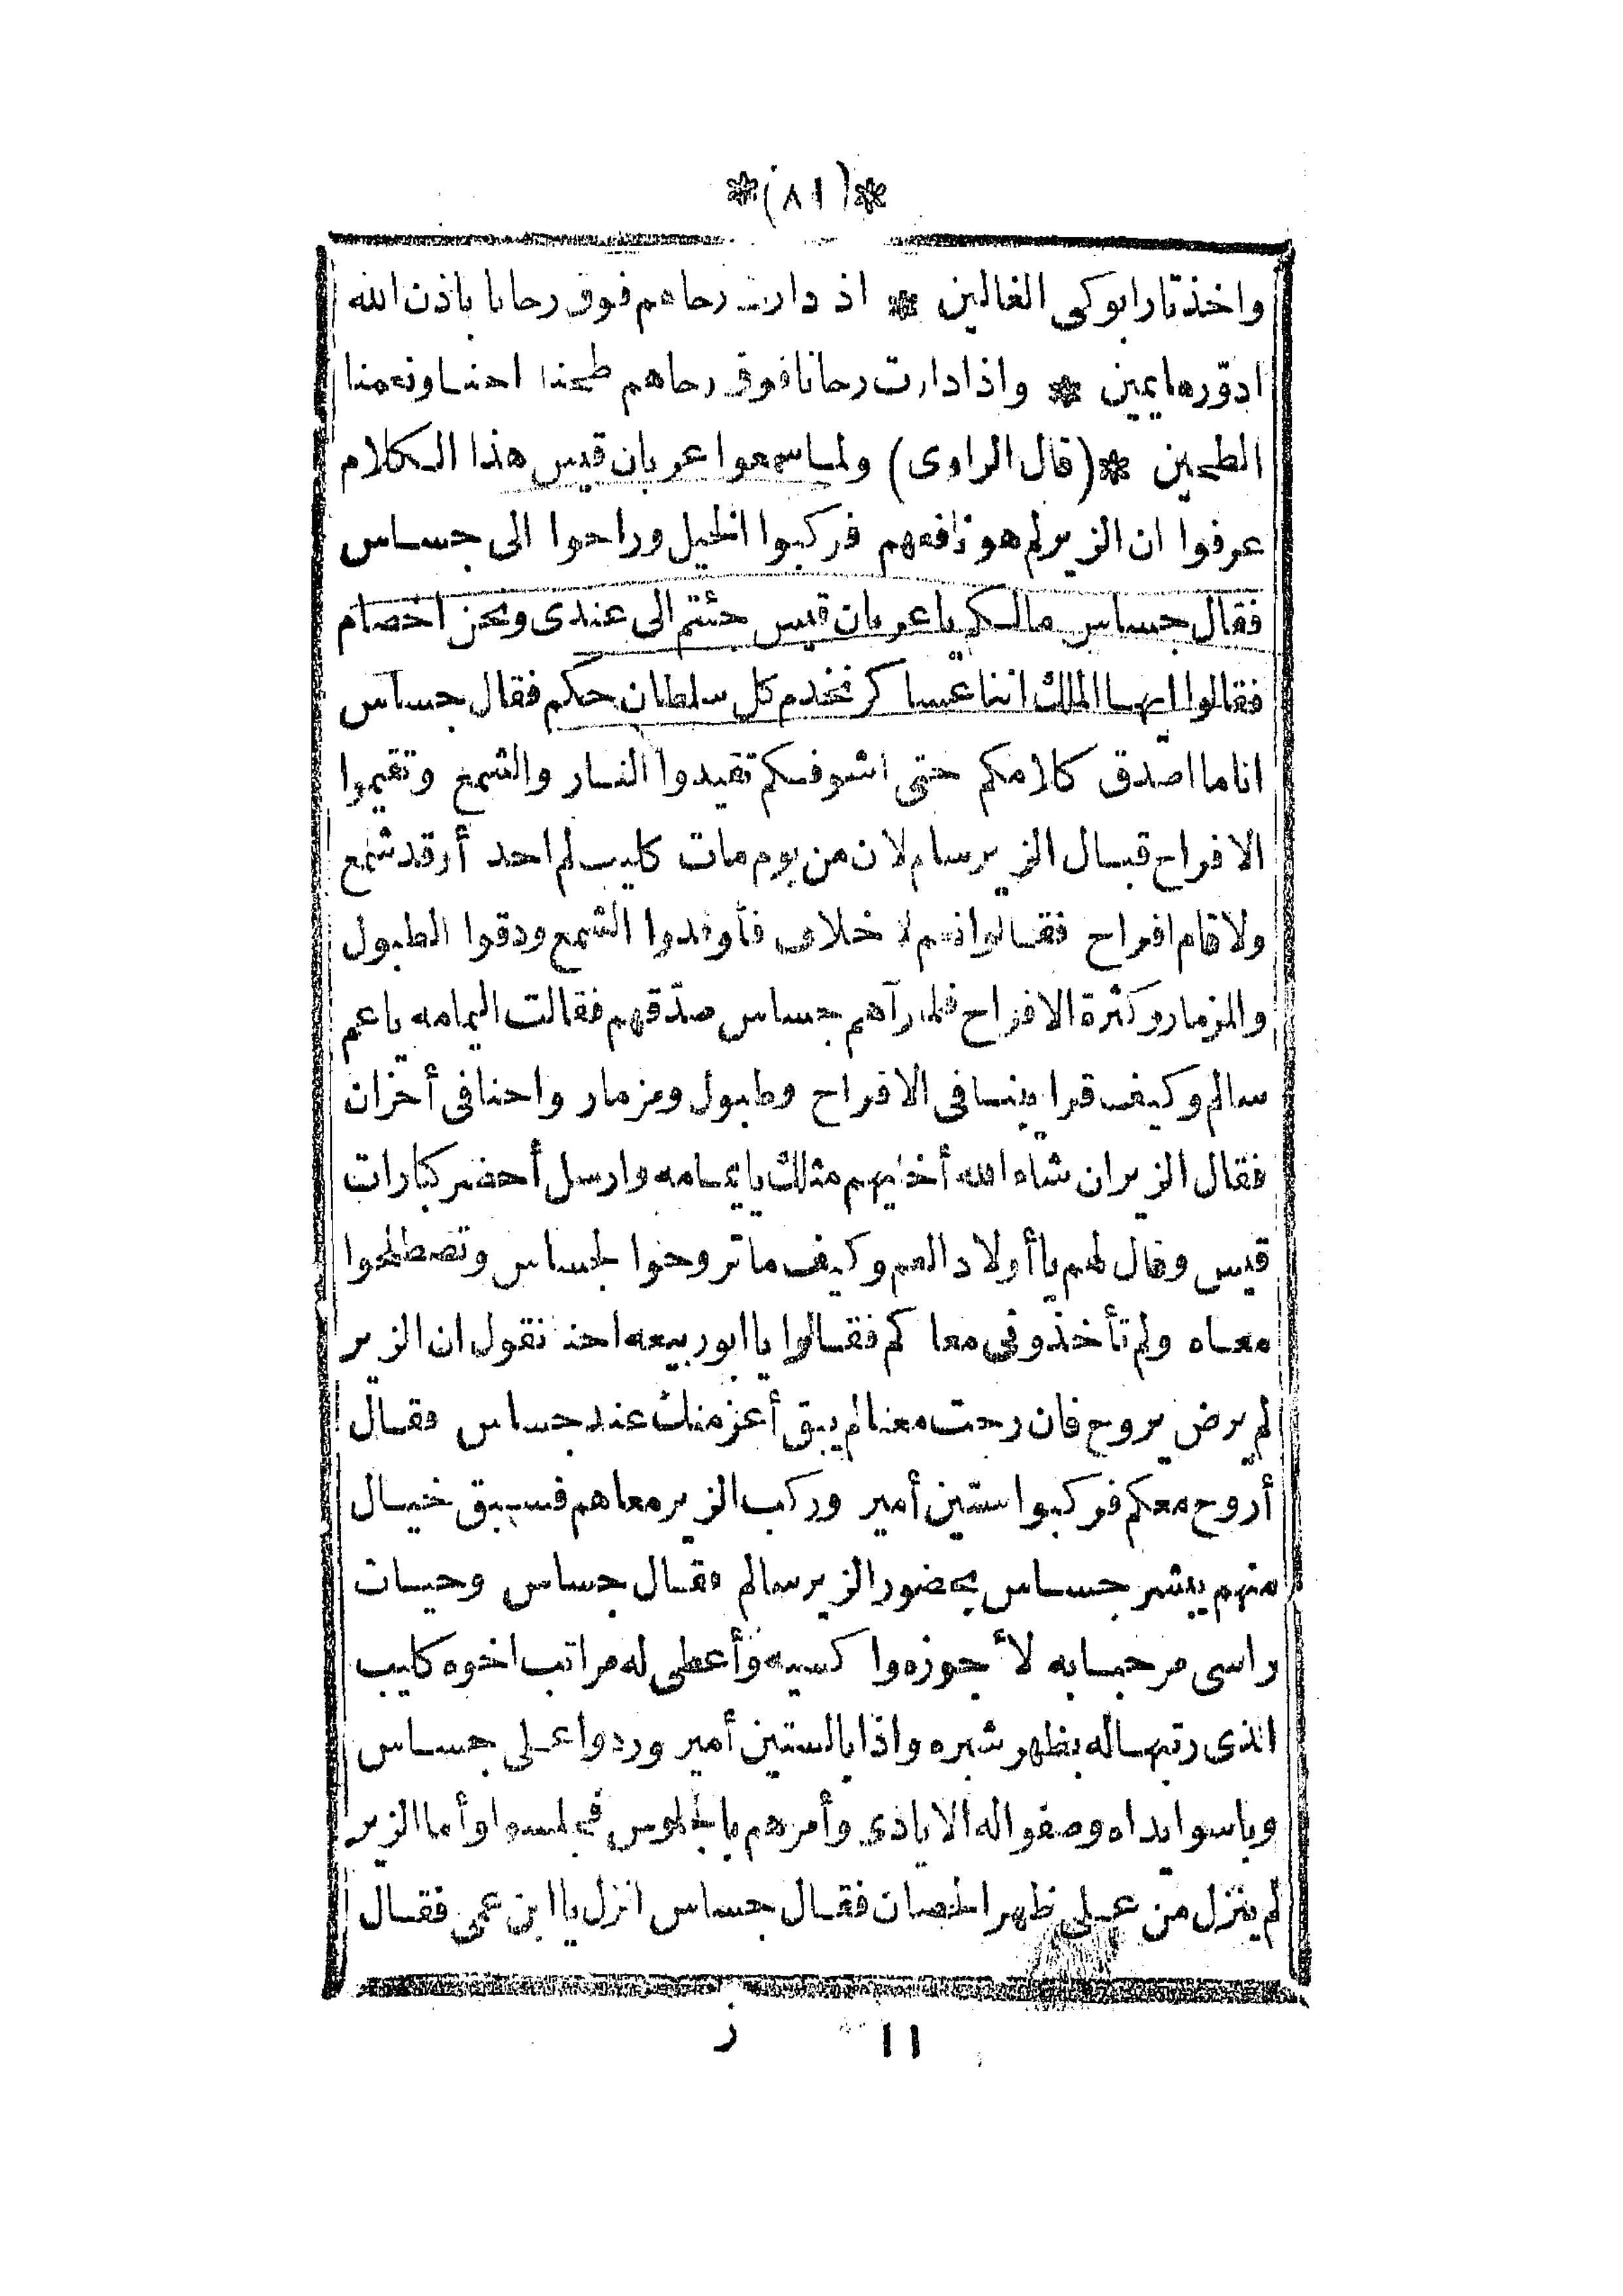 *(٨١)*
واخذ تار ابوكى الغاليين * اذ دارت رحاهم فوق رحانا باذن الله
ادوّرها يمين * واذا دارت رحانا فوق رحاهم طحنا احنا ونعمنا
الطحين *(قال الراوى) ولما سمعوا عربان قيس هذا الكلام
عرفوا ان الزير لم هو نافعهم فركبوا الخيل وراحوا الى جساس
فقال جساس مالكم ياعربان قيس جئتم الى عندى ونحن اخصام
فقالوا ايها الملك اننا عساكر نخدم كل سلطان حكم فقال جساس
انا ما اصدق كلامكم حتى اشوفكم تقيدوا النار والشمع وتقيموا
الافراح قبال الزير سالم لان من يوم مات كليب لم احد أوقد شمع
ولا قام افراح فقالوا نعم لا خلاف فأوقدوا الشمع ودقوا الطبول
والمزمار وكثرة الافراح فلما رآهم جساس صدّقهم فقالت اليمامه ياعم
سالم وكيف قرايبنا فى الافراح وطبول ومزمار واحنا فى أحزان
فقال الزير ان شاء الله أخليهم مثلك يايمامه وارسل أحضر كبارات
قيس وقال لهم ياأولاد العم وكيف ما تروحوا لجساس وتصطلحوا
معاه ولم تأخذونى معاكم فقالوا ياابو ربيعه احنا نقول ان الزير
لم يرض يروح فان رحت معنا لم يبق أعز منك عند جساس فقال
أروح معكم فركبوا ستين أمير وركب الزير معاهم فسبق خيال
منهم يبشر جساس بحضور الزير سالم فقال جساس وحيات
راسى مرحبا به لأجوزه واكسيه وأعطى له مراتب اخوه كليب
الذى رتبها له بظهر شبره واذا بالستين أمير وردوا على جساس
وباسوا يداه وصفوا له الايادى وأمرهم بالجلوس فجلسوا وأما الزير
لم ينزل من على ظهر الحصان فقال جساس انزل ياابن عمى فقال
١١ ز